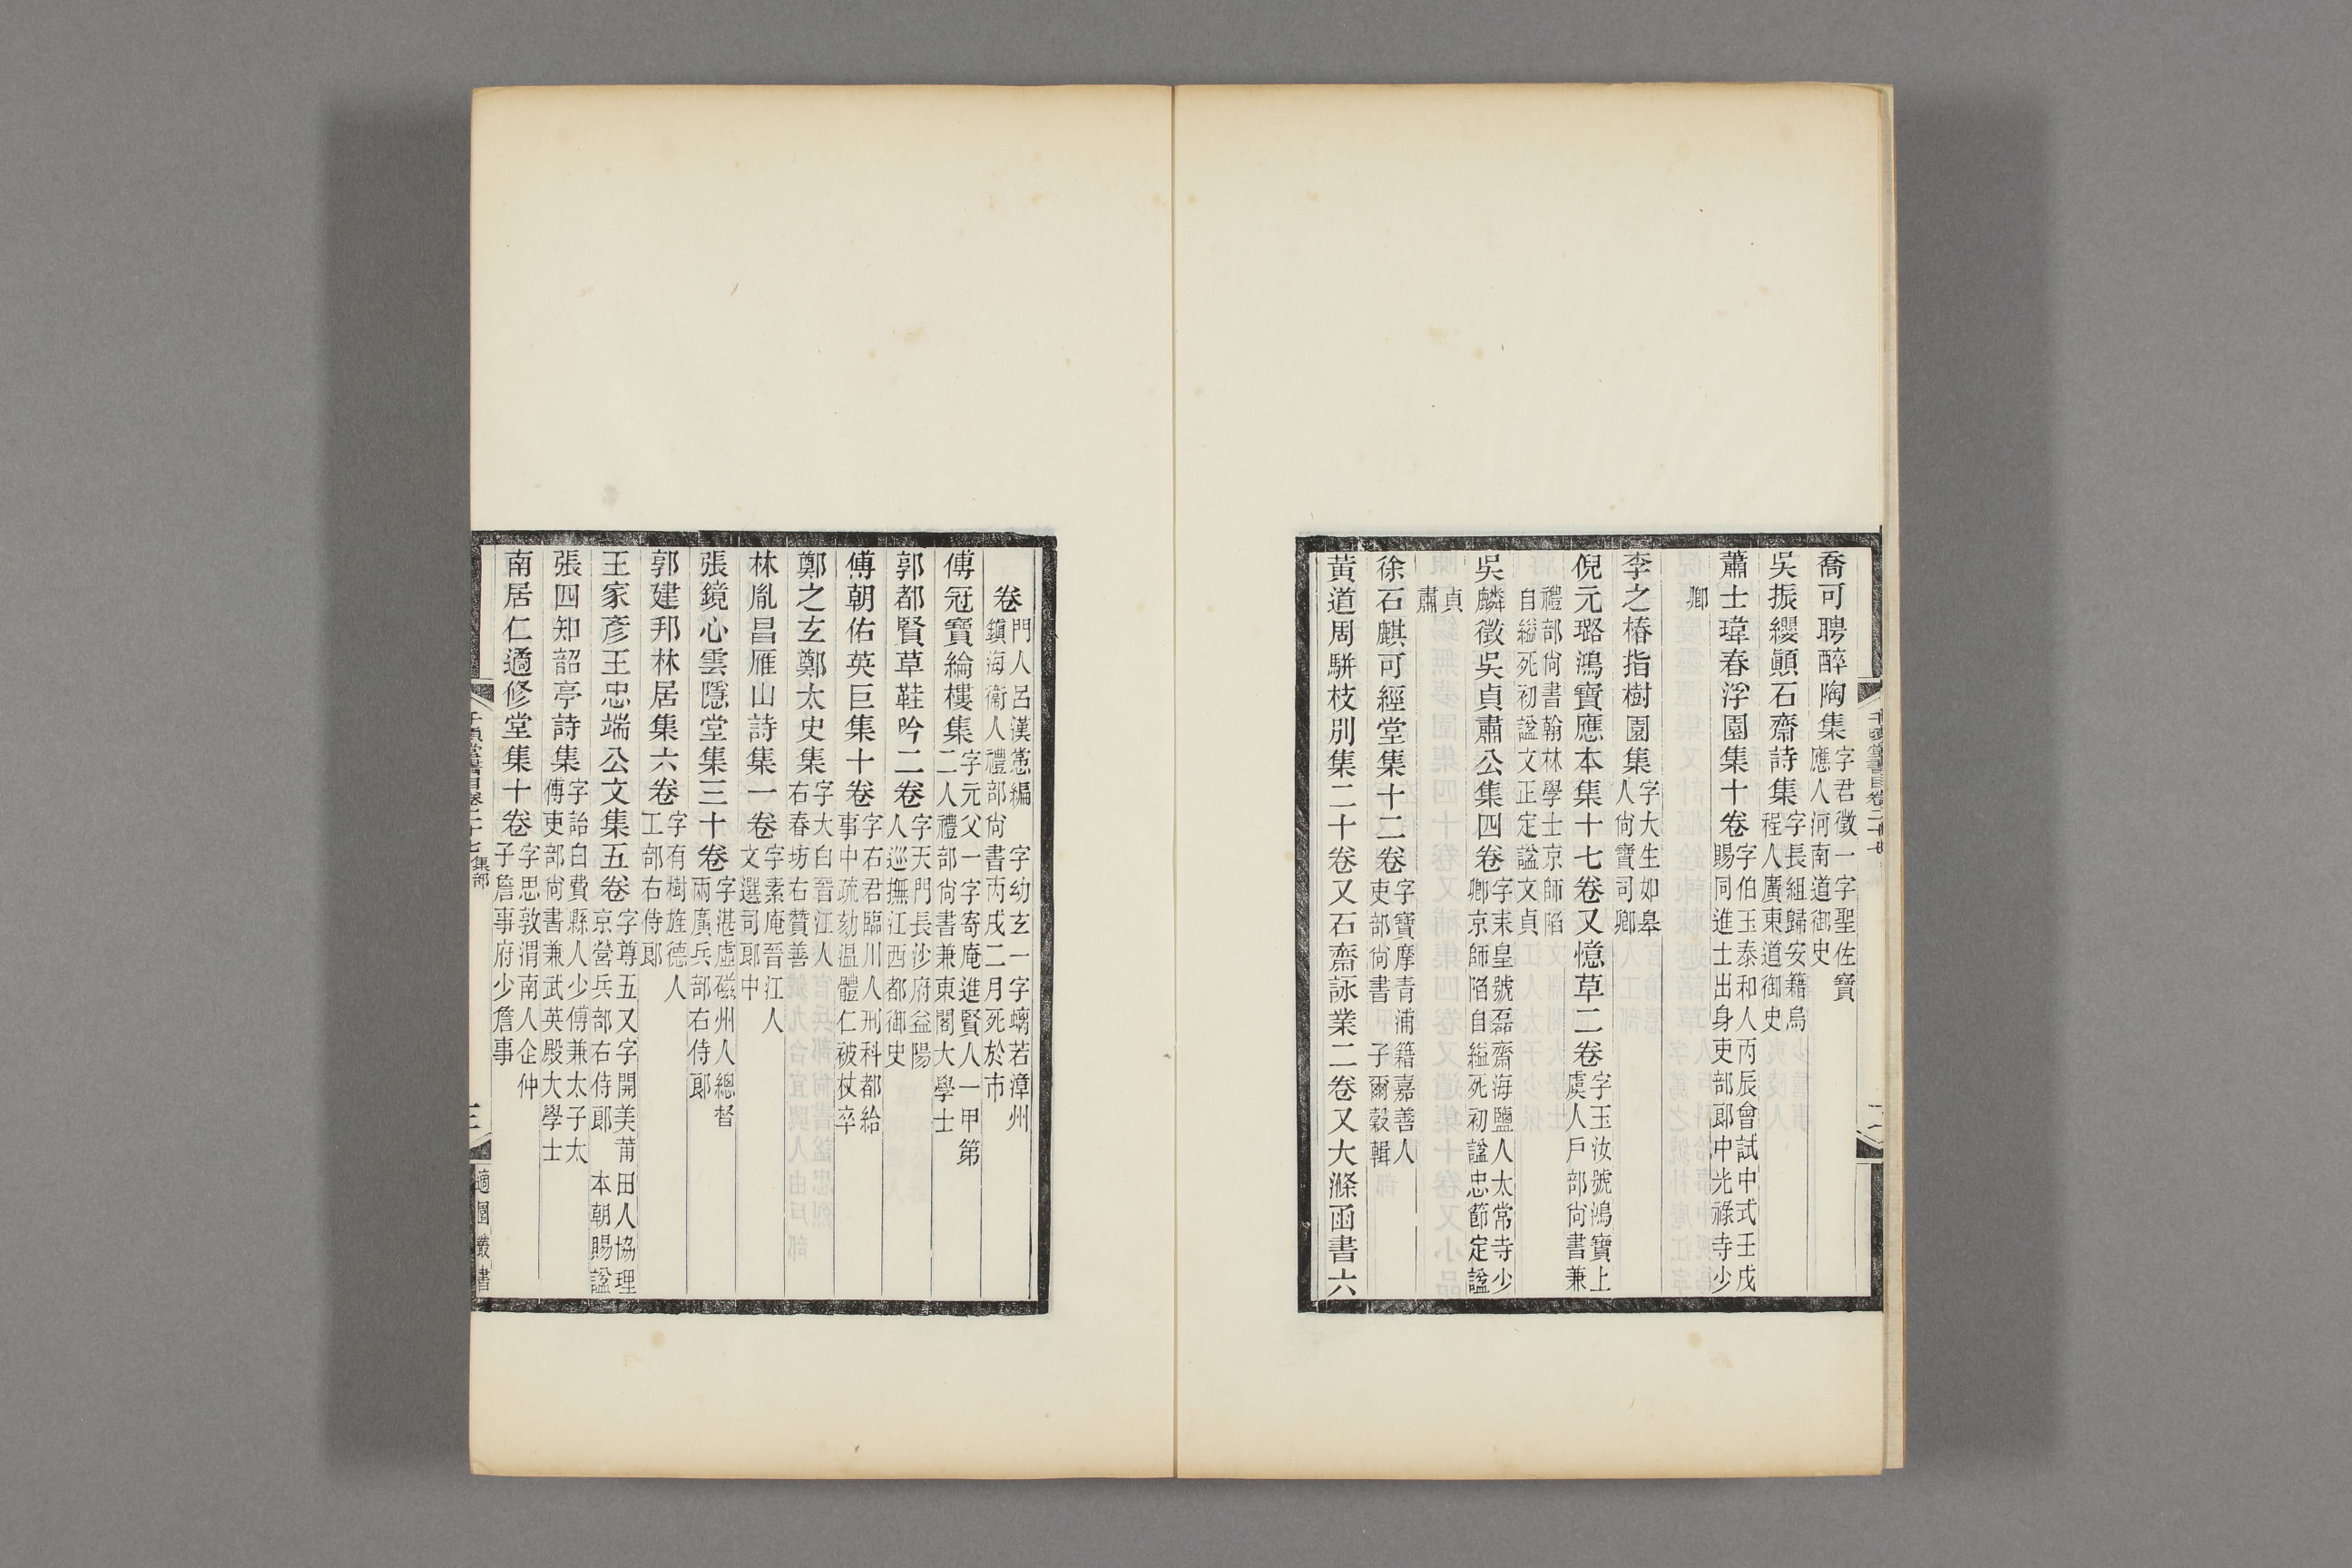 喬可聘醉陶集字君徵一字聖佐寶應人河南道御史
吳振纓顓石齋詩集字長組歸安籍烏程人廣東道御史
蕭士瑋春浮園集十卷字伯玉泰和人丙辰會試中式壬戌賜同進士出身吏部郎中光祿寺少
卿
李之椿指樹園集字大生如皋人尙寶司卿
倪元璐鴻寶應本集十七卷又憶草二卷字玉汝號鴻寶上虞人戶部尙書兼
禮部尙書翰林學士京師陷自縊死初諡文正定諡文貞
吳麟徵吳貞肅公集四卷字耒皇號磊齋海鹽人太常寺少卿京師陷自縊死初諡忠節定諡
貞肅
徐石麒可經堂集十二卷字寶摩青浦籍嘉善人吏部尙書 子爾穀輯
黃道周駢枝別集二十卷又石齋詠業二卷又大滌函書六
卷門人呂漢憃編 字幼玄一字螭若漳州鎮海衞人禮部尙書丙戌二月死於市
傅冠寶綸樓集字元父一字寄庵進賢人一甲第二人禮部尙書兼東閣大學士
郭都賢草鞋吟二卷字天門長沙府益陽人巡撫江西都御史
傅朝佑英巨集十卷字右君臨川人刑科都給事中疏劾溫體仁被杖卒
鄭之玄鄭太史集字大白晉江人右春坊右贊善
林胤昌雁山詩集一卷字素庵晉江人文選司郎中
張鏡心雲隱堂集三十卷字湛虛磁州人總督兩廣兵部右侍郎
郭建邦林居集六卷字有樹旌德人工部右侍郎
王家彥王忠端公文集五卷字尊五又字開美莆田人協理京營兵部右侍郎 本朝賜諡
張四知韶亭詩集字詒白費縣人少傅兼太子太傅吏部尙書兼武英殿大學士
南居仁適修堂集十卷字思敦渭南人企仲子詹事府少詹事
千頃堂書目卷二十七 集部
三
適園叢書